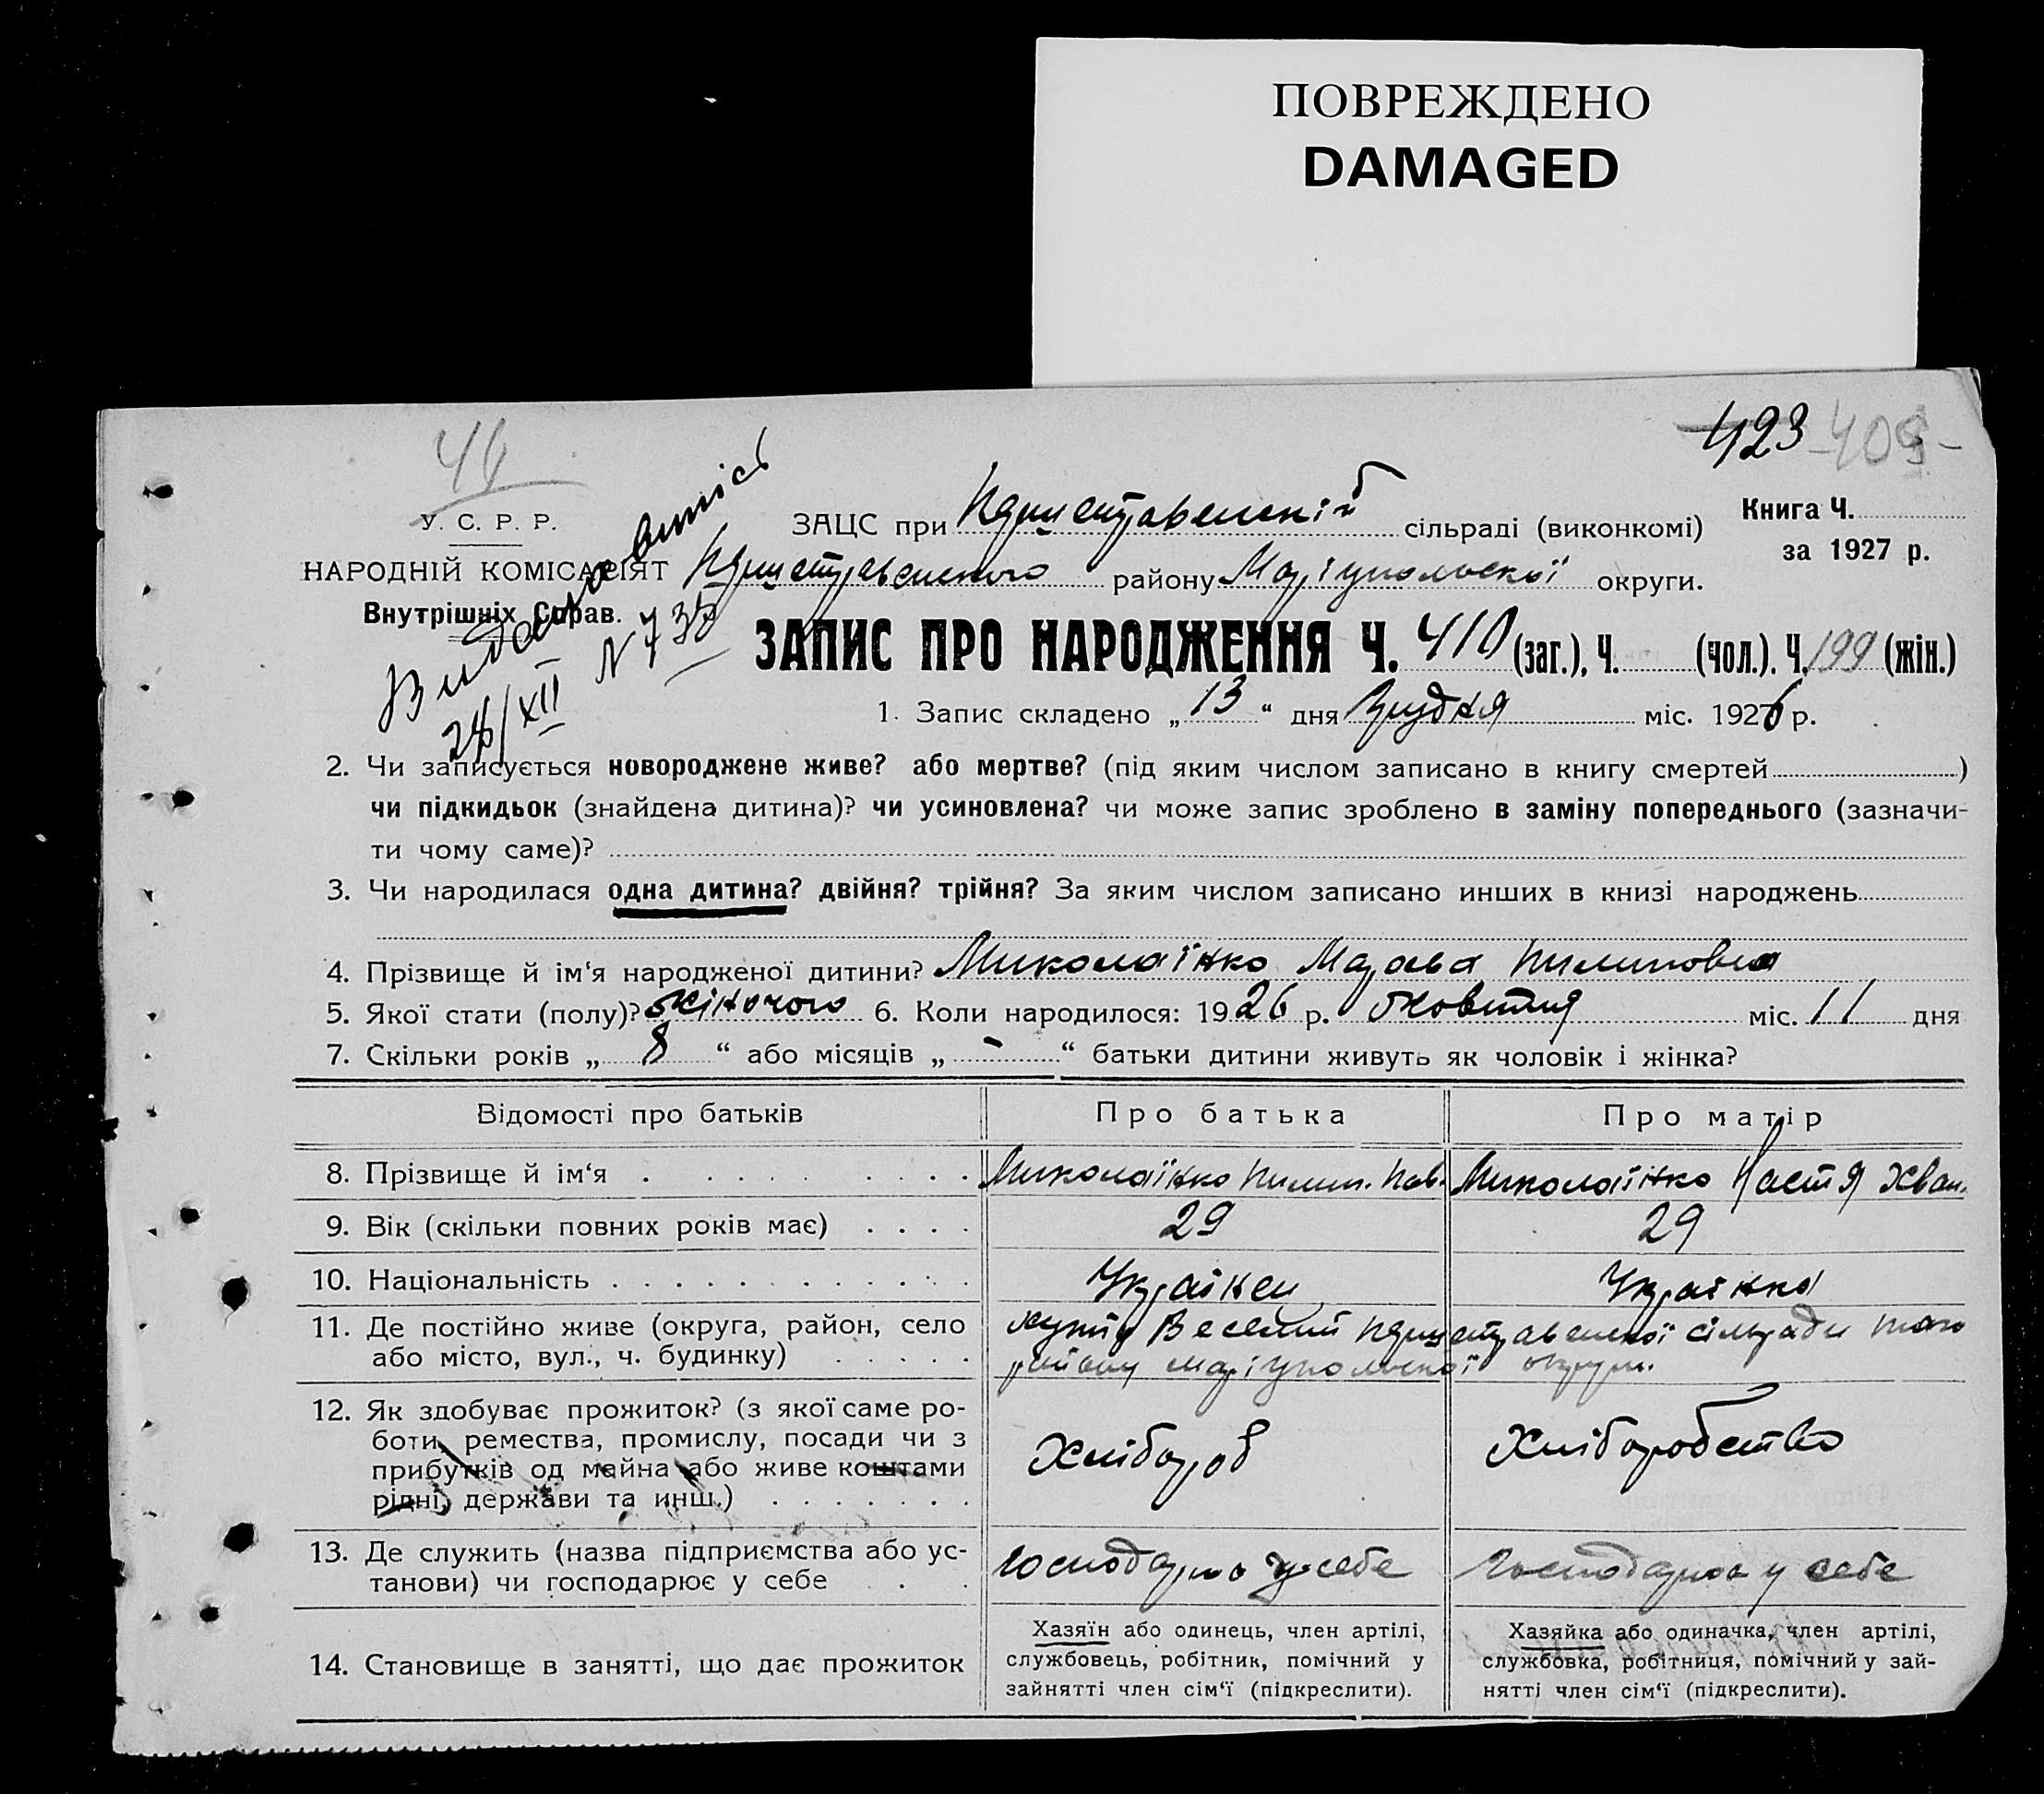 ПОВРЕЖДЕНО
DAMAGED
423 409
44
У. С. Р. Р.
НАРОДНІЙ КОМІСАРІЯТ
Внутрішніх Справ.
Видана випись
28/XII N 735
ЗАЦС при сільраді (виконкомі)
району Маріупольської округи.
Книга Ч.
за 1927 р.
ЗАПИС ПРО НАРОДЖЕННЯ Ч. 410 (заг.), Ч. (чол.). Ч. 199 (жін.)
1. Запис складено „ 13 “ дня Грудня міс. 1926 р.
2. Чи записується новороджене живе? або мертве? (під яким числом записано в книгу смертей )
чи підкидьок (знайдена дитина)? чи усиновлена? чи може запис зроблено в заміну попереднього (зазначи-
ти чому саме)?
3. Чи народилася одна дитина? двійня? трійня? За яким числом записано инших в книзі народжень
4. Прізвище й ім‘я народженої дитини? Миколаїнко Пилиповна
5. Якої стати (полу)? жіночого 6. Коли народилося: 1926 р. жовтня міс. 11 дня
7. Скільки років „ 8 “ або місяців „ - “ батьки дитини живуть як чоловік і жінка?
Відомості про батьків Про батька Про матір
8. Прізвище й ім‘я Миколаїнко Пилип. Пав. Миколаїнко Настя Хван.
9. Вік (скільки повних років має) 29 29
10. Національність Україиец Українка
11. Де постійно живе (округа, район, село хутір Веселий сільради того
або місто, вул., ч. будинку) району Маріупольської округи.
12. Як здобуває прожиток? (з якої саме ро-
боти, ремества, промислу, посади чи з
прибутків од майна або живе коштами
рідні, держави та инш.) Хлібороб Хліборобство
13. Де служить (назва підприємства або ус-
танови) чи господарює у себе Господарює у себе Господарює у себе
14. Становище в занятті, що дає прожиток
Хазяїн або одинець, член артілі,
службовець, робітник, помічний у
зайнятті член сім‘ї (підкреслити).
Хазяйка або одиначка, член артілі,
службовка, робітниця, помічний у зай-
нятті член сім‘ї (підкреслити).